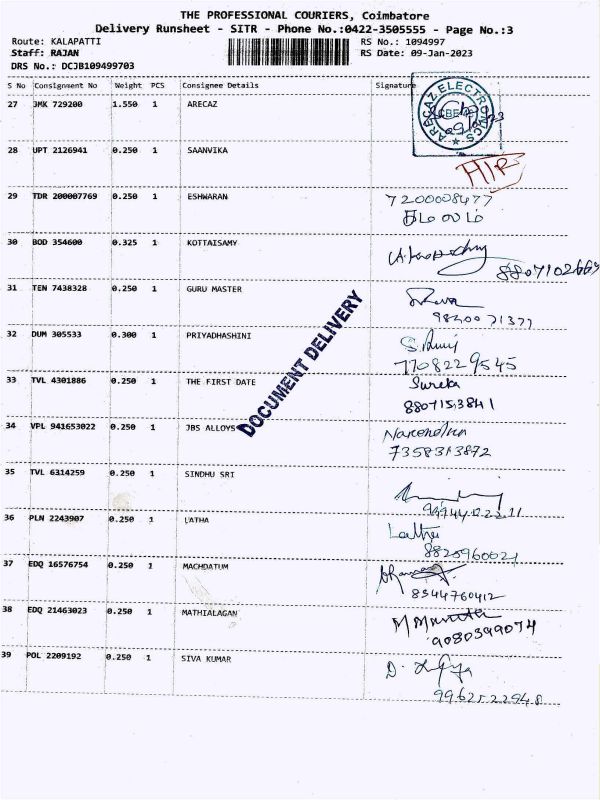 THE PROFESSIONAL COURIERS, Coimbatore
Delivery Runsheet - SITR - Phone No.:0422-3505555 - Page No.:3
Route: KALAPATTI RS No.: 1094997
Staff: RAJAN RS Date: 09-Jan-2023
DRS No.: DCJB109499703
S No Consignment No Weight PCS Consignee Details Signature
27 JMK 729200 1.550 1 ARECAZ
ARECAZ ELECTRONICS
28 UPT 2126941 0.250 1 SAANVIKA
29 TDR 200007769 0.250 1 ESHWARAN 7200008477
30 BOD 354600 0.325 1 KOTTAISAMY
31 TEN 7438328 0.250 1 GURU MASTER
32 DUM 305533 0.300 1 PRIYADHASHINI
7708229545
33 TVL 4301886 0.250 1 THE FIRST DATE Sureka
8807153841
DOCUMENT DELIVERY
34 VPL 941653022 0.250 1 JBS ALLOYS
7358313872
35 TVL 6314259 0.250 1 SINDHU SRI
36 PLN 2243907 0.250 1 LATHA
8825960021
37 EDQ 16576754 0.250 1 MACHDATUM
8544760412
38 EDQ 21463023 0.250 1 MATHIALAGAN
9080399074
39 POL 2209192 0.250 1 SIVA KUMAR
9962522948